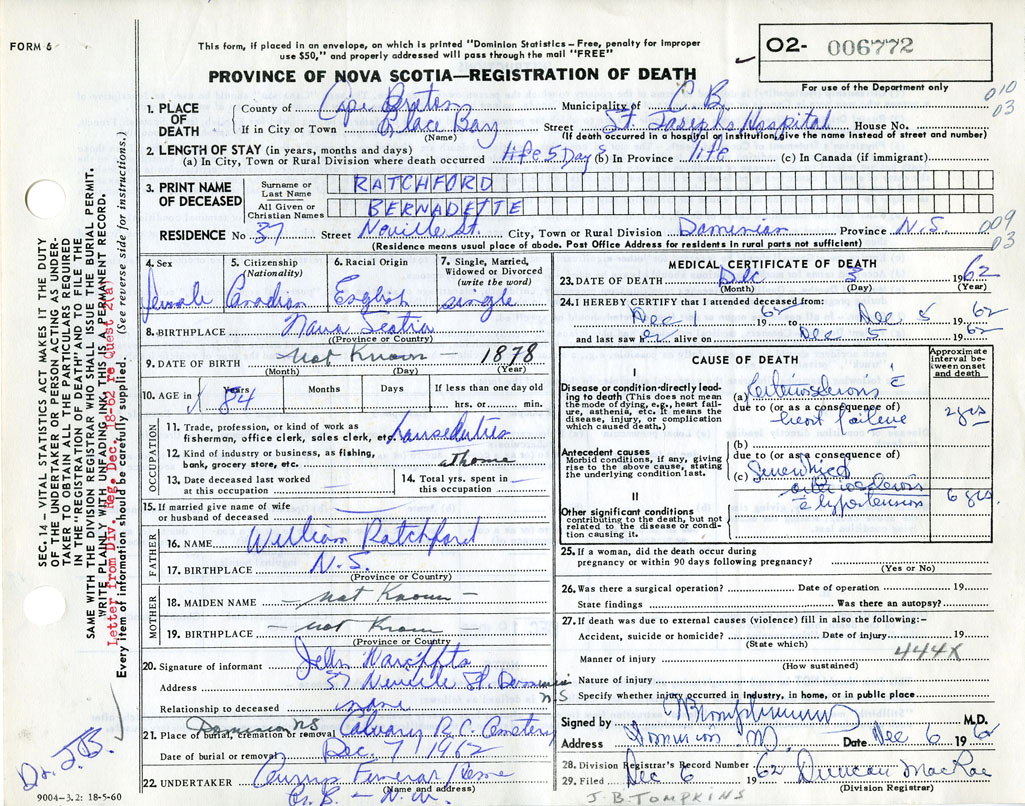 FORM 6
This form, if placed in an envelope, on which is printed "Dominion Statistics – Free, penalty for improper
use $50," and properly addressed will pass through the mail "FREE"
PROVINCE OF NOVA SCOTIA—REGISTRATION OF DEATH
O2- 006772
For use of the Department only
010
03
1. PLACE OF DEATH
County of Cape Breton Municipality of C. B.
If in City or Town Glace Bay Street St. Josephs Hospital House No.
(Name) (If death occurred in hospital or institution, give the name instead of street and number)
2. LENGTH OF STAY (in years, months and days)
(a) In City, Town or Rural Division where death occurred life 5 Days (b) In Province life (c) In Canada (if immigrant)
3. PRINT NAME OF DECEASED
Surname or Last Name RATCHFORD
All Given or Christian Names BERNADETTE
RESIDENCE No 37 Street Neville St. City, Town or Rural Division Dominion Province N.S.
009
03
(Residence means usual place of abode. Post Office Address for residents in rural parts not sufficient)
4. Sex female
5. Citizenship (Nationality) Canadian
6. Racial Origin English
7. Single, Married, Widowed or Divorced (write the word) single
8. BIRTHPLACE Nova Scotia
(Province or Country)
9. DATE OF BIRTH Not Known – 1878
(Month) (Day) (Year)
10. AGE in Years 84 Months Days If less than one day old
hrs. or min.
OCCUPATION
11. Trade, profession, or kind of work as
fisherman, office clerk, sales clerk, etc. houseduties
12. Kind of industry or business, as fishing,
bank, grocery store, etc. at home
13. Date deceased last worked
at this occupation
14. Total yrs. spent in
this occupation
15. If married give name of wife
or husband of deceased
FATHER
16. NAME William Ratchford
17. BIRTHPLACE N.S.
(Province or Country)
MOTHER
18. MAIDEN NAME – Not Known –
19. BIRTHPLACE – Not Known –
(Province or Country)
20. Signature of informant
Address 37 Neville St. Dominion
N.S
Relationship to deceased
Dominion NS
21. Place of burial, cremation or removal Calvary R.C. Cemetery
Date of burial or removal Dec. 7, 1962
22. UNDERTAKER Curry's Funeral Home
(Name and address)
9004-3.2: 18-5-60
MEDICAL CERTIFICATE OF DEATH
23. DATE OF DEATH Dec 5 1962
(Month) (Day) (Year)
24. I HEREBY CERTIFY that I attended deceased from:
Dec 1 1962 to Dec 5 1962
and last saw her alive on Dec 5 1962
CAUSE OF DEATH
Approximate interval between onset and death
I
Disease or condition directly leading to death (This does not mean the mode of dying, e.g., heart failure, asthenia, etc. It means the disease, injury, or complication which caused death.)
(a) Arteriosclerosis c
due to (or as a consequence of)
heart failure 2 yrs
Antecedent causes
Morbid conditions, if any, giving rise to the above cause, stating the underlying condition last.
(b)
due to (or as a consequence of)
(c) Generalized
arteriosclerosis
c hypertension 6 yrs.
II
Other significant conditions
contributing to the death, but not related to the disease or condition causing it.
25. If a woman, did the death occur during
pregnancy or within 90 days following pregnancy?
(Yes or No)
26. Was there a surgical operation? Date of operation 19
State findings Was there an autopsy?
27. If death was due to external causes (violence) fill in also the following:–
Accident, suicide or homicide? Date of injury 19
(State which)
Manner of injury 444X
(How sustained)
Nature of injury
Specify whether injury occurred in industry, in home, or in public place
Signed by M.D.
Address Dominion Date Dec 6 1962
28. Division Registrar's Record Number
29. Filed Dec 6 1962 Duncan MacRae
(Division Registrar)
J. B. TOMPKINS
SEC. 14 – VITAL STATISTICS ACT MAKES IT THE DUTY
OF THE UNDERTAKER OR PERSON ACTING AS UNDER-
TAKER TO OBTAIN ALL THE PARTICULARS REQUIRED
IN THE "REGISTRATION OF DEATH" AND TO FILE THE
SAME WITH THE DIVISION REGISTRAR WHO SHALL ISSUE THE BURIAL PERMIT.
WRITE PLAINLY WITH UNFADING INK. THIS IS A PERMANENT RECORD.
Letter from Div. Reg. Dec. 18-62 re Quest 2(a)
Every item of information should be carefully supplied. (See reverse side for instructions.)
Dr. J.B.